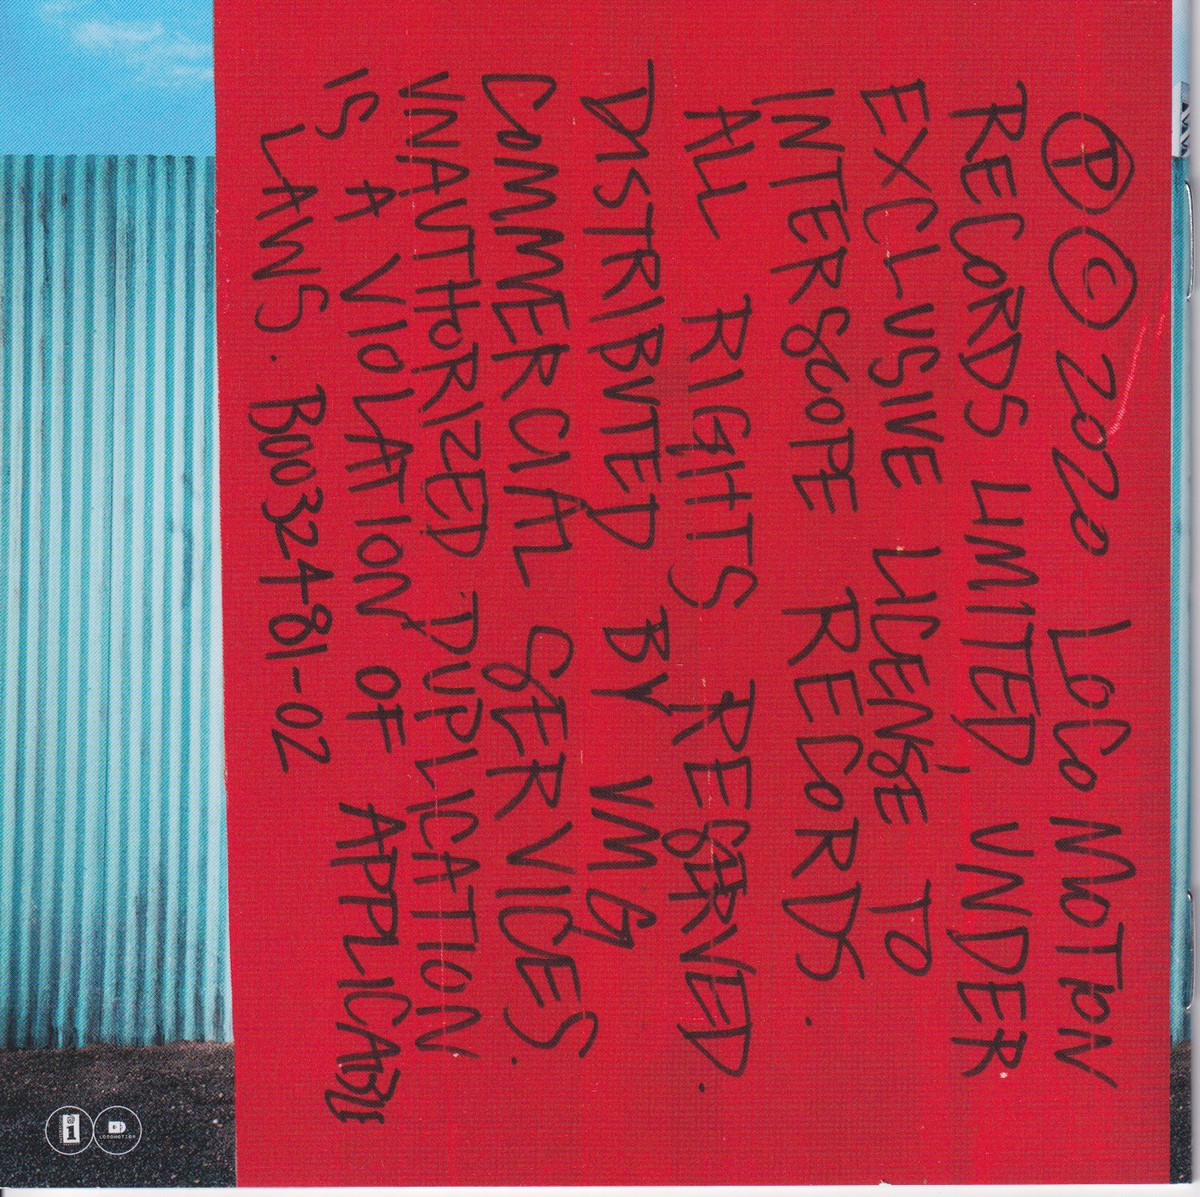 Ⓟ © 2020 LOCOMOTION
RECORDS LIMITED, UNDER
EXCLUSIVE LICENSE TO
INTERSCOPE RECORDS.
ALL RIGHTS RESERVED.
DISTRIBUTED BY UMG
COMMERCIAL SERVICES.
UNAUTHORIZED DUPLICATION
IS A VIOLATION OF APPLICABLE
LAWS. B0032481-02
i
LOCOMOTION